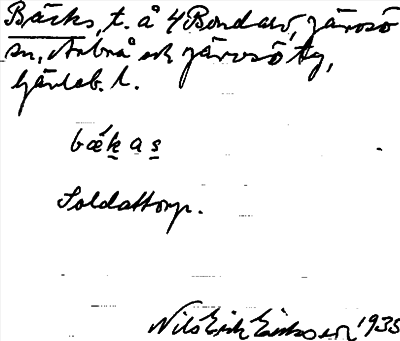 Bäcks, t. å 4 Bondarv, Järvsö
sn, Arbrå och Järvsö tg,
Gävleb. l.
bǽk a s
Soldattorp.
Nils Erik Eriksson 1935